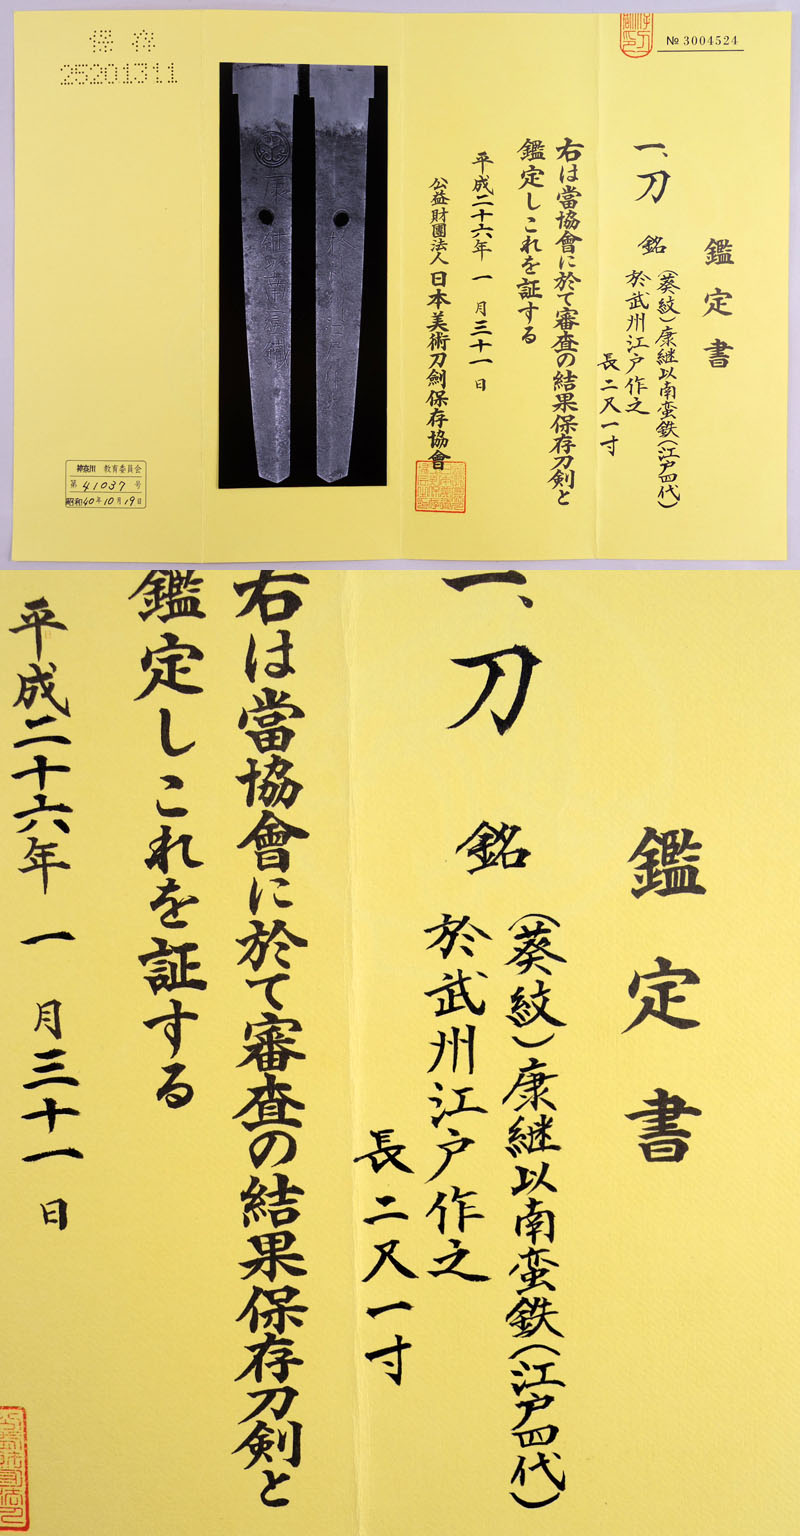 № 3004524
鑑定書
一、刀 銘 (葵紋)康継以南蛮鉄(江戸四代)
於武州江戸作之
長二尺一寸
右は當協會に於て審査の結果保存刀剣と
鑑定しこれを証する
平成二十六年 一月三十一日
公益財團法人 日本美術刀劍保存協會
保存
25201311
神奈川 教育委員会
第 41037 号
昭和40年10月19日
鑑定書
一、刀 銘 (葵紋)康継以南蛮鉄(江戸四代)
於武州江戸作之
長二尺一寸
右は當協會に於て審査の結果保存刀剣と
鑑定しこれを証する
平成二十六年 一月三十一日